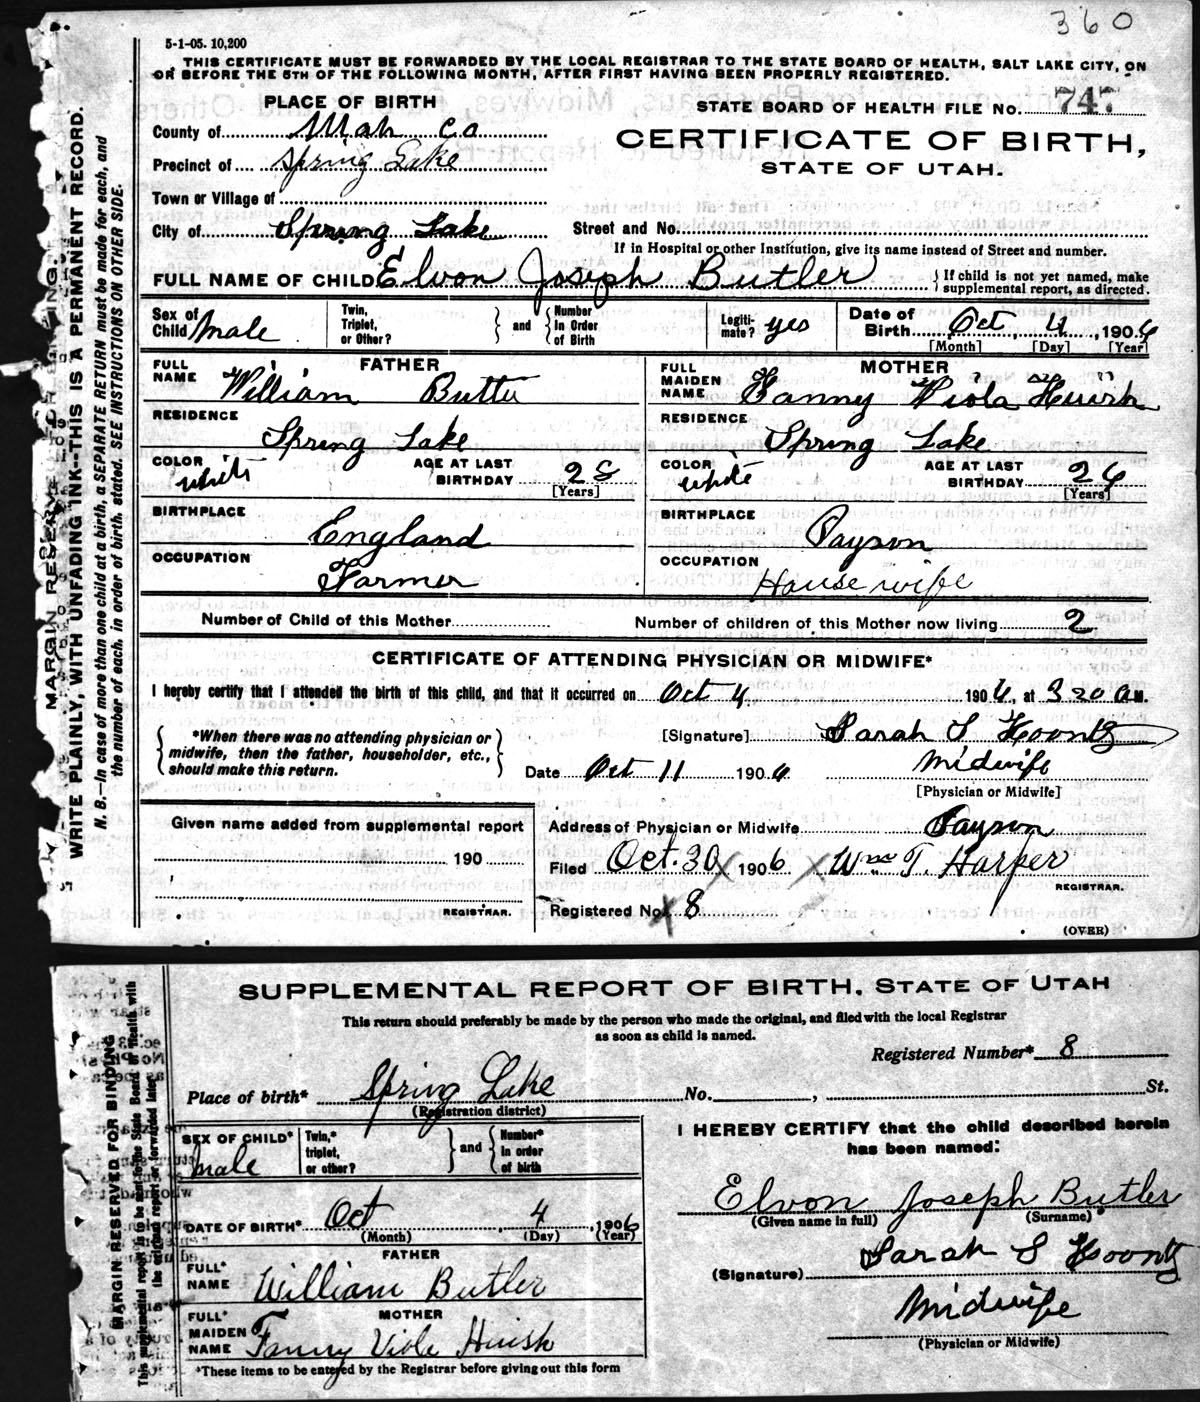 360
5-1-05. 10,200
THIS CERTIFICATE MUST BE FORWARDED BY THE LOCAL REGISTRAR TO THE STATE BOARD OF HEALTH, SALT LAKE CITY, ON
OR BEFORE THE 5TH OF THE FOLLOWING MONTH, AFTER FIRST HAVING BEEN PROPERLY REGISTERED.
PLACE OF BIRTH
STATE BOARD OF HEALTH FILE No. 747
County of Utah Co
CERTIFICATE OF BIRTH,
Precinct of Spring Lake
STATE OF UTAH.
Town or Village of
City of Spring Lake Street and No.
If in Hospital or other Institution, give its name instead of Street and number.
FULL NAME OF CHILD Elvon Joseph Butler } If child is not yet named, make supplemental report, as directed.
Sex of Child Male Twin, Triplet, or Other? } and { Number In Order of Birth Legitimate? yes Date of Birth Oct 4, 1906
[Month] [Day] [Year]
FATHER
FULL NAME William Butler
RESIDENCE Spring Lake
COLOR white AGE AT LAST BIRTHDAY 28 [Years]
BIRTHPLACE England
OCCUPATION Farmer
MOTHER
FULL MAIDEN NAME Fanny Viola Huish
RESIDENCE Spring Lake
COLOR white AGE AT LAST BIRTHDAY 26 [Years]
BIRTHPLACE Payson
OCCUPATION House wife
Number of Child of this Mother Number of children of this Mother now living 2
CERTIFICATE OF ATTENDING PHYSICIAN OR MIDWIFE*
I hereby certify that I attended the birth of this child, and that it occurred on Oct 4 1906, at 3 20 a M.
{ *When there was no attending physician or midwife, then the father, householder, etc., should make this return. }
[Signature] Sarah S Koontz
Date Oct 11 1906 Midwife
[Physician or Midwife]
Given name added from supplemental report
190
REGISTRAR.
Address of Physician or Midwife Payson
Filed Oct. 30 X 1906 X Wm T. Harper
REGISTRAR.
Registered No. X 8
(OVER)
MARGIN RESERVED FOR BINDING.
WRITE PLAINLY, WITH UNFADING INK--THIS IS A PERMANENT RECORD.
N. B.—In case of more than one child at a birth, a SEPARATE RETURN must be made for each, and
the number of each, in order of birth, stated. SEE INSTRUCTIONS ON OTHER SIDE.
SUPPLEMENTAL REPORT OF BIRTH, STATE OF UTAH
This return should preferably be made by the person who made the original, and filed with the local Registrar
as soon as child is named.
Registered Number* 8
Place of birth* Spring Lake No. , St.
(Registration district)
SEX OF CHILD* Male Twin,* triplet, or other? } and { Number* In order of birth
DATE OF BIRTH* Oct 4, 1906
(Month) (Day) (Year)
FATHER
FULL* NAME William Butler
MOTHER
FULL* MAIDEN NAME Fanny Viole Huish
*These items to be entered by the Registrar before giving out this form
I HEREBY CERTIFY that the child described herein
has been named:
Elvon Joseph Butler
(Given name in full) (Surname)
(Signature) Sarah S Koontz
Midwife
(Physician or Midwife)
MARGIN RESERVED FOR BINDING
This supplemental report is to be sent to the State Board of Health with
the original report or forwarded later.